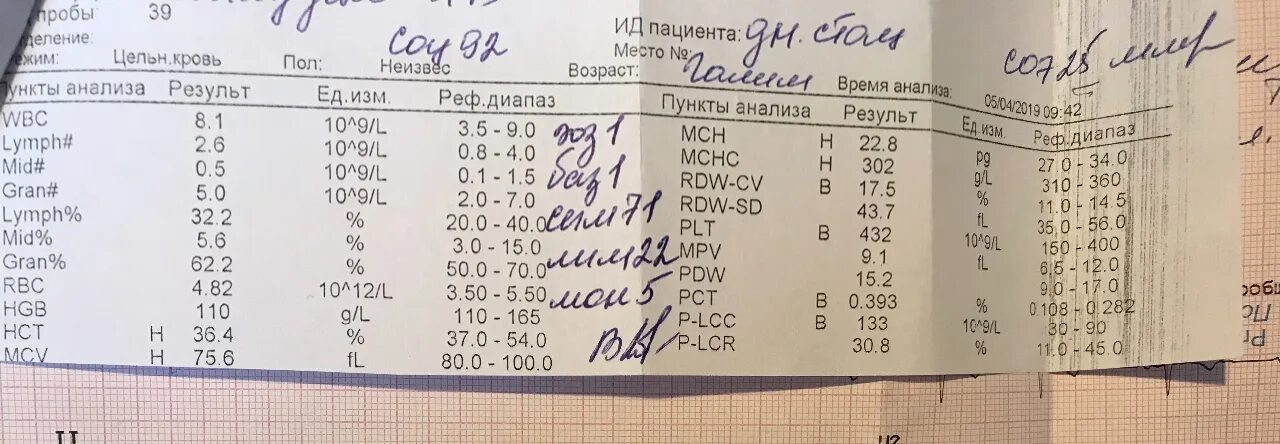 пробы 39
деление:
жим: Цельн.кровь Пол: Неизвес
ИД пациента: дн. стац
Место №:
Возраст:
Время анализа:
05/04/2019 09:42
СОЭ 25
ункты анализа Результ Ед.изм. Реф.диапаз
WBC 8.1 10^9/L 3.5 - 9.0 эоз 1
Lymph# 2.6 10^9/L 0.8 - 4.0
Mid# 0.5 10^9/L 0.1 - 1.5 баз 1
Gran# 5.0 10^9/L 2.0 - 7.0
Lymph% 32.2 % 20.0 - 40.0 71
Mid% 5.6 % 3.0 - 15.0
Gran% 62.2 % 50.0 - 70.0 лим 22
RBC 4.82 10^12/L 3.50 - 5.50 мон 5
HGB 110 g/L 110 - 165
HCT H 36.4 % 37.0 - 54.0
MCV H 75.6 fL 80.0 - 100.0
Пункты анализа Результ Ед.изм. Реф.диапаз
MCH H 22.8 pg 27.0 - 34.0
MCHC H 302 g/L 310 - 360
RDW-CV B 17.5 % 11.0 - 14.5
RDW-SD 43.7 fL 35.0 - 56.0
PLT B 432 10^9/L 150 - 400
MPV 9.1 fL 6.5 - 12.0
PDW 15.2 9.0 - 17.0
PCT B 0.393 % 0.108 - 0.282
P-LCC B 133 10^9/L 30 - 90
P-LCR 30.8 % 11.0 - 45.0